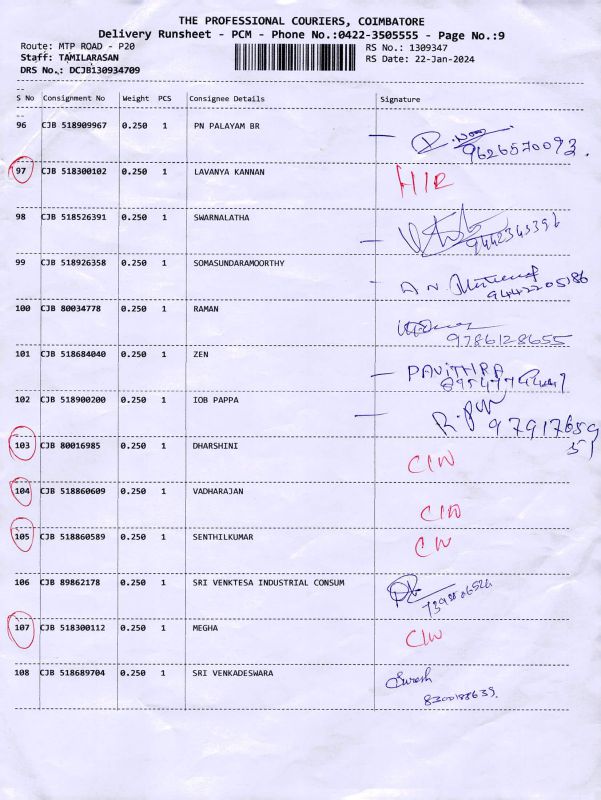 THE PROFESSIONAL COURIERS, COIMBATORE
Delivery Runsheet - PCM - Phone No.:0422-3505555 - Page No.:9
Route: MTP ROAD - P20 RS No.: 1309347
Staff: TAMILARASAN RS Date: 22-Jan-2024
DRS No.: DCJB130934709
--
S No Consignment No Weight PCS Consignee Details Signature
--
96 CJB 518909967 0.250 1 PN PALAYAM BR
9626570093.
97 CJB 518300102 0.250 1 LAVANYA KANNAN
98 CJB 518526391 0.250 1 SWARNALATHA
9442345396
99 CJB 518926358 0.250 1 SOMASUNDARAMOORTHY
9444205186
100 CJB 80034778 0.250 1 RAMAN
9786128655
101 CJB 518684040 0.250 1 ZEN
PAVITHRA
102 CJB 518900200 0.250 1 IOB PAPPA
97917659
51
103 CJB 80016985 0.250 1 DHARSHINI
CIW
104 CJB 518860609 0.250 1 VADHARAJAN
CIW
105 CJB 518860589 0.250 1 SENTHILKUMAR
CIW
106 CJB 89862178 0.250 1 SRI VENKTESA INDUSTRIAL CONSUM
107 CJB 518300112 0.250 1 MEGHA
CIW
108 CJB 518689704 0.250 1 SRI VENKADESWARA
Suresh
8300188639.